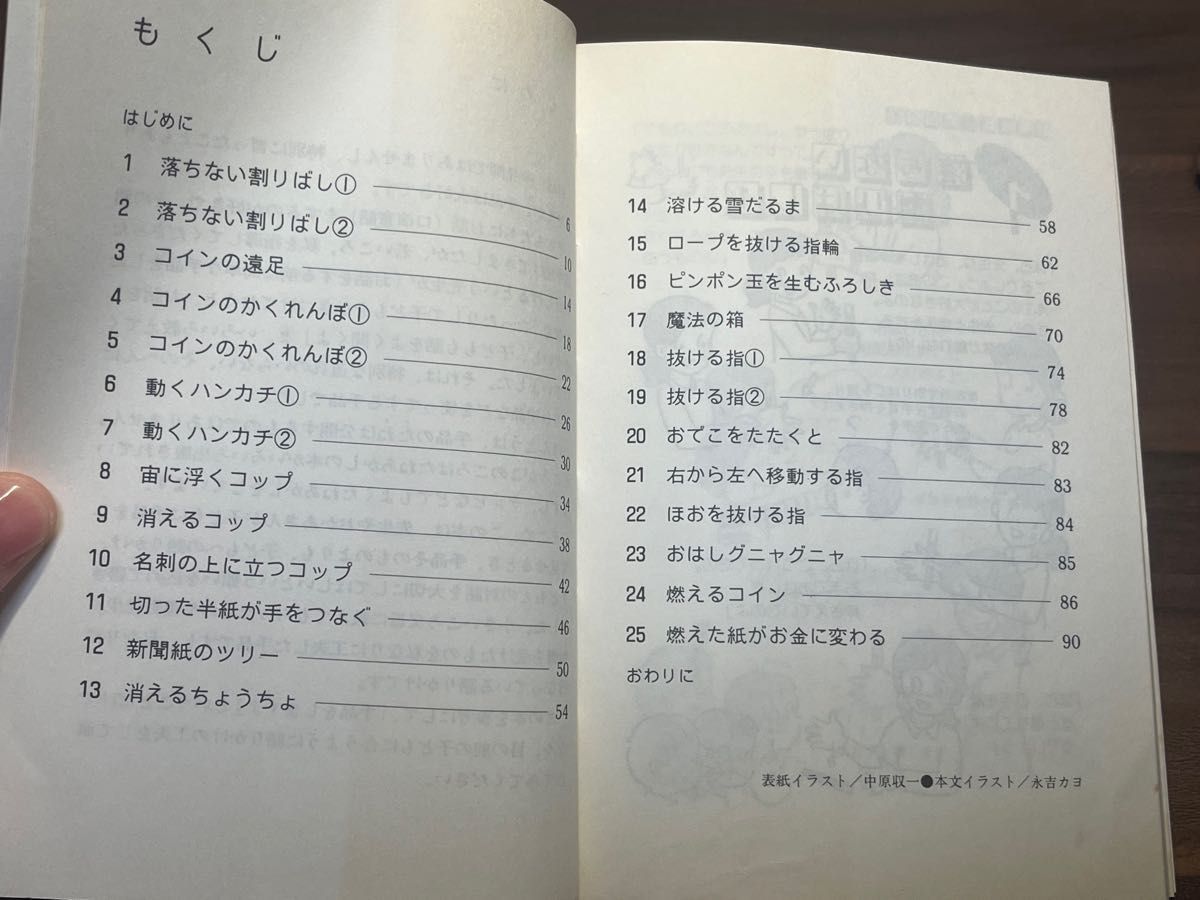 もくじ
はじめに
1 落ちない割りばし① 6
2 落ちない割りばし② 10
3 コインの遠足 14
4 コインのかくれんぼ① 18
5 コインのかくれんぼ② 22
6 動くハンカチ① 26
7 動くハンカチ② 30
8 宙に浮くコップ 34
9 消えるコップ 38
10 名刺の上に立つコップ 42
11 切った半紙が手をつなぐ 46
12 新聞紙のツリー 50
13 消えるちょうちょ 54
14 溶ける雪だるま 58
15 ロープを抜ける指輪 62
16 ピンポン玉を生むふろしき 66
17 魔法の箱 70
18 抜ける指① 74
19 抜ける指② 78
20 おでこをたたくと 82
21 右から左へ移動する指 83
22 ほおを抜ける指 84
23 おはしグニャグニャ 85
24 燃えるコイン 86
25 燃えた紙がお金に変わる 90
おわりに
表紙イラスト／中原収一●本文イラスト／永吉カヨ